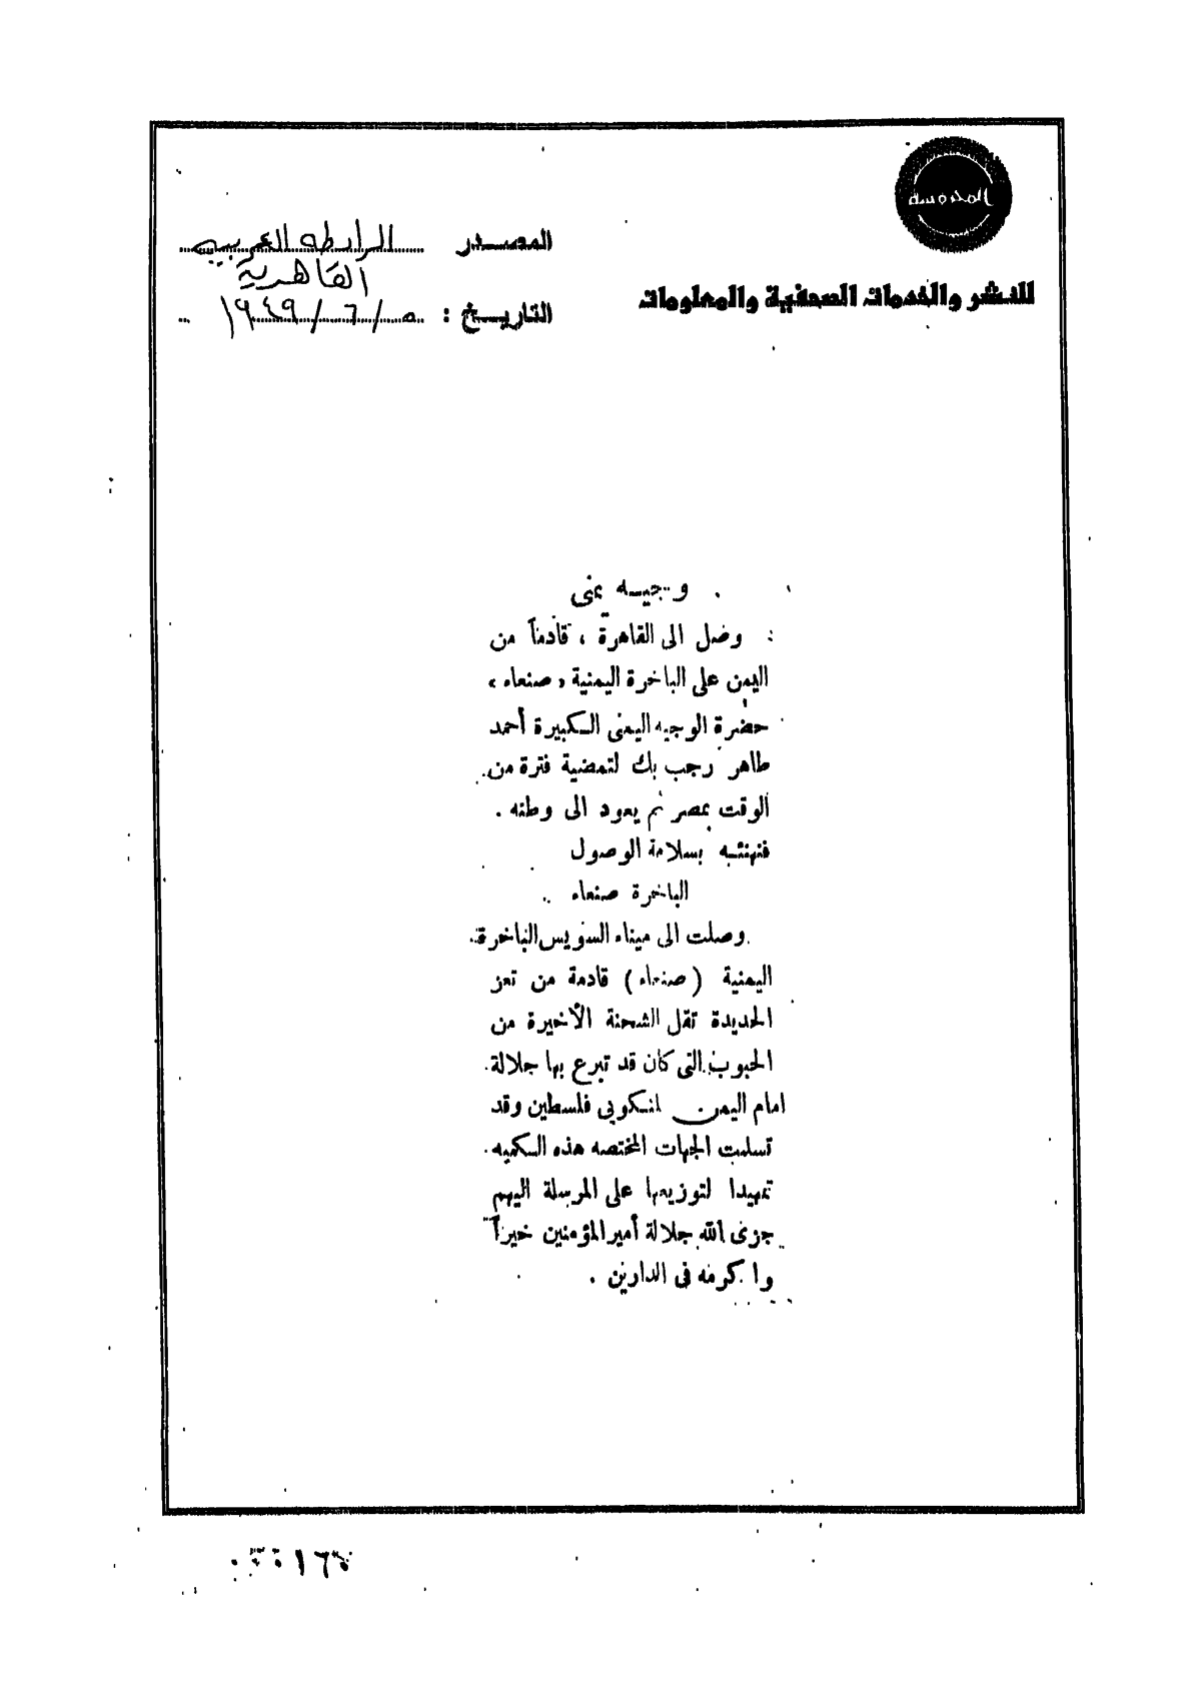 المحروسة
للنشر والخدمات الصحفية والمعلومات
المصدر الرابطه العربيه
القاهرية
التاريخ : ٥/٦/١٩٤٩
وجيه يمنى
وصل الى القاهرة ، قادماً من
اليمن على الباخرة اليمنية « صنعاء »
حضرة الوجيه اليمنى الكبيرة أحمد
طاهر رجب بك لتمضية فترة من
الوقت بمصر ثم يعود الى وطنه .
فنهنئه بسلامة الوصول
الباخرة صنعاء
وصلت الى ميناء السويس الباخرة
اليمنية (صنعاء) قادمة من تعز
الحديدة تقل الشحنة الأخيرة من
الحبوب التى كان قد تبرع بها جلالة
امام اليمن لمنكوبى فلسطين وقد
تسلمت الجهات المختصه هذه الكميه
تمهيدا لتوزيعها على المرسلة اليهم
جزى الله جلالة أمير المؤمنين خيراً
واكرمه فى الدارين .